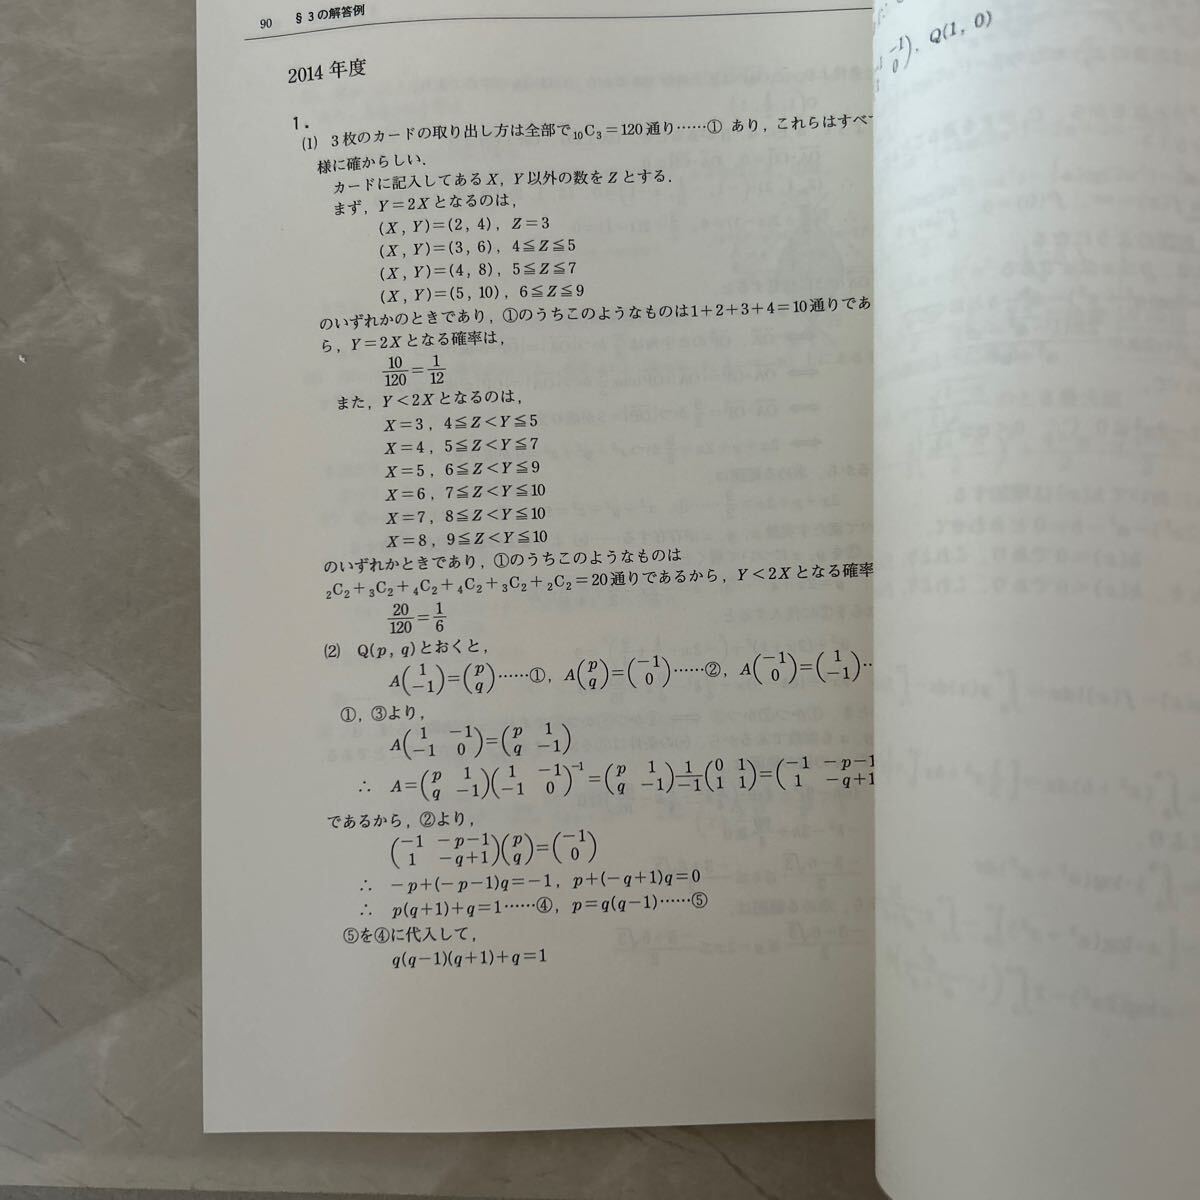 90 §3の解答例
2014年度
1.
(1) 3枚のカードの取り出し方は全部で₁₀C₃=120通り……① あり,これらはすべて
様に確からしい.
カードに記入してあるX, Y以外の数をZとする.
まず, Y=2Xとなるのは,
(X, Y)=(2, 4), Z=3
(X, Y)=(3, 6), 4≦Z≦5
(X, Y)=(4, 8), 5≦Z≦7
(X, Y)=(5, 10), 6≦Z≦9
のいずれかのときであり, ①のうちこのようなものは1+2+3+4=10通りであ
ら, Y=2Xとなる確率は,
10/120=1/12
また, Y<2Xとなるのは,
X=3, 4≦Z<Y≦5
X=4, 5≦Z<Y≦7
X=5, 6≦Z<Y≦9
X=6, 7≦Z<Y≦10
X=7, 8≦Z<Y≦10
X=8, 9≦Z<Y≦10
のいずれかときであり, ①のうちこのようなものは
₂C₂+₃C₂+₄C₂+₄C₂+₃C₂+₂C₂=20通りであるから, Y<2Xとなる確率
20/120=1/6
(2) Q(p, q)とおくと,
A(1 -1)=(p q)……①, A(p q)=(-1 0)……②, A(-1 0)=(1 -1)…
①, ③より,
A(1 -1 -1 0)=(p 1 q -1)
∴ A=(p 1 q -1)(1 -1 -1 0)⁻¹=(p 1 q -1)1/-1(0 1 1 1)=(-1 -p-1 1 -q+1
であるから, ②より,
(-1 -p-1 1 -q+1)(p q)=(-1 0)
∴ -p+(-p-1)q=-1, p+(-q+1)q=0
∴ p(q+1)+q=1……④, p=q(q-1)……⑤
⑤を④に代入して,
q(q-1)(q+1)+q=1
-1 0), Q(1, 0)